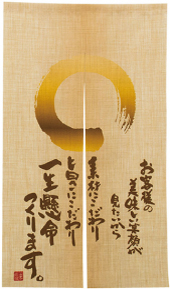 お客様の
美味しい笑顔が
見たいから
素材にこだわり
旨さにこだわり
一生懸命
つくります。